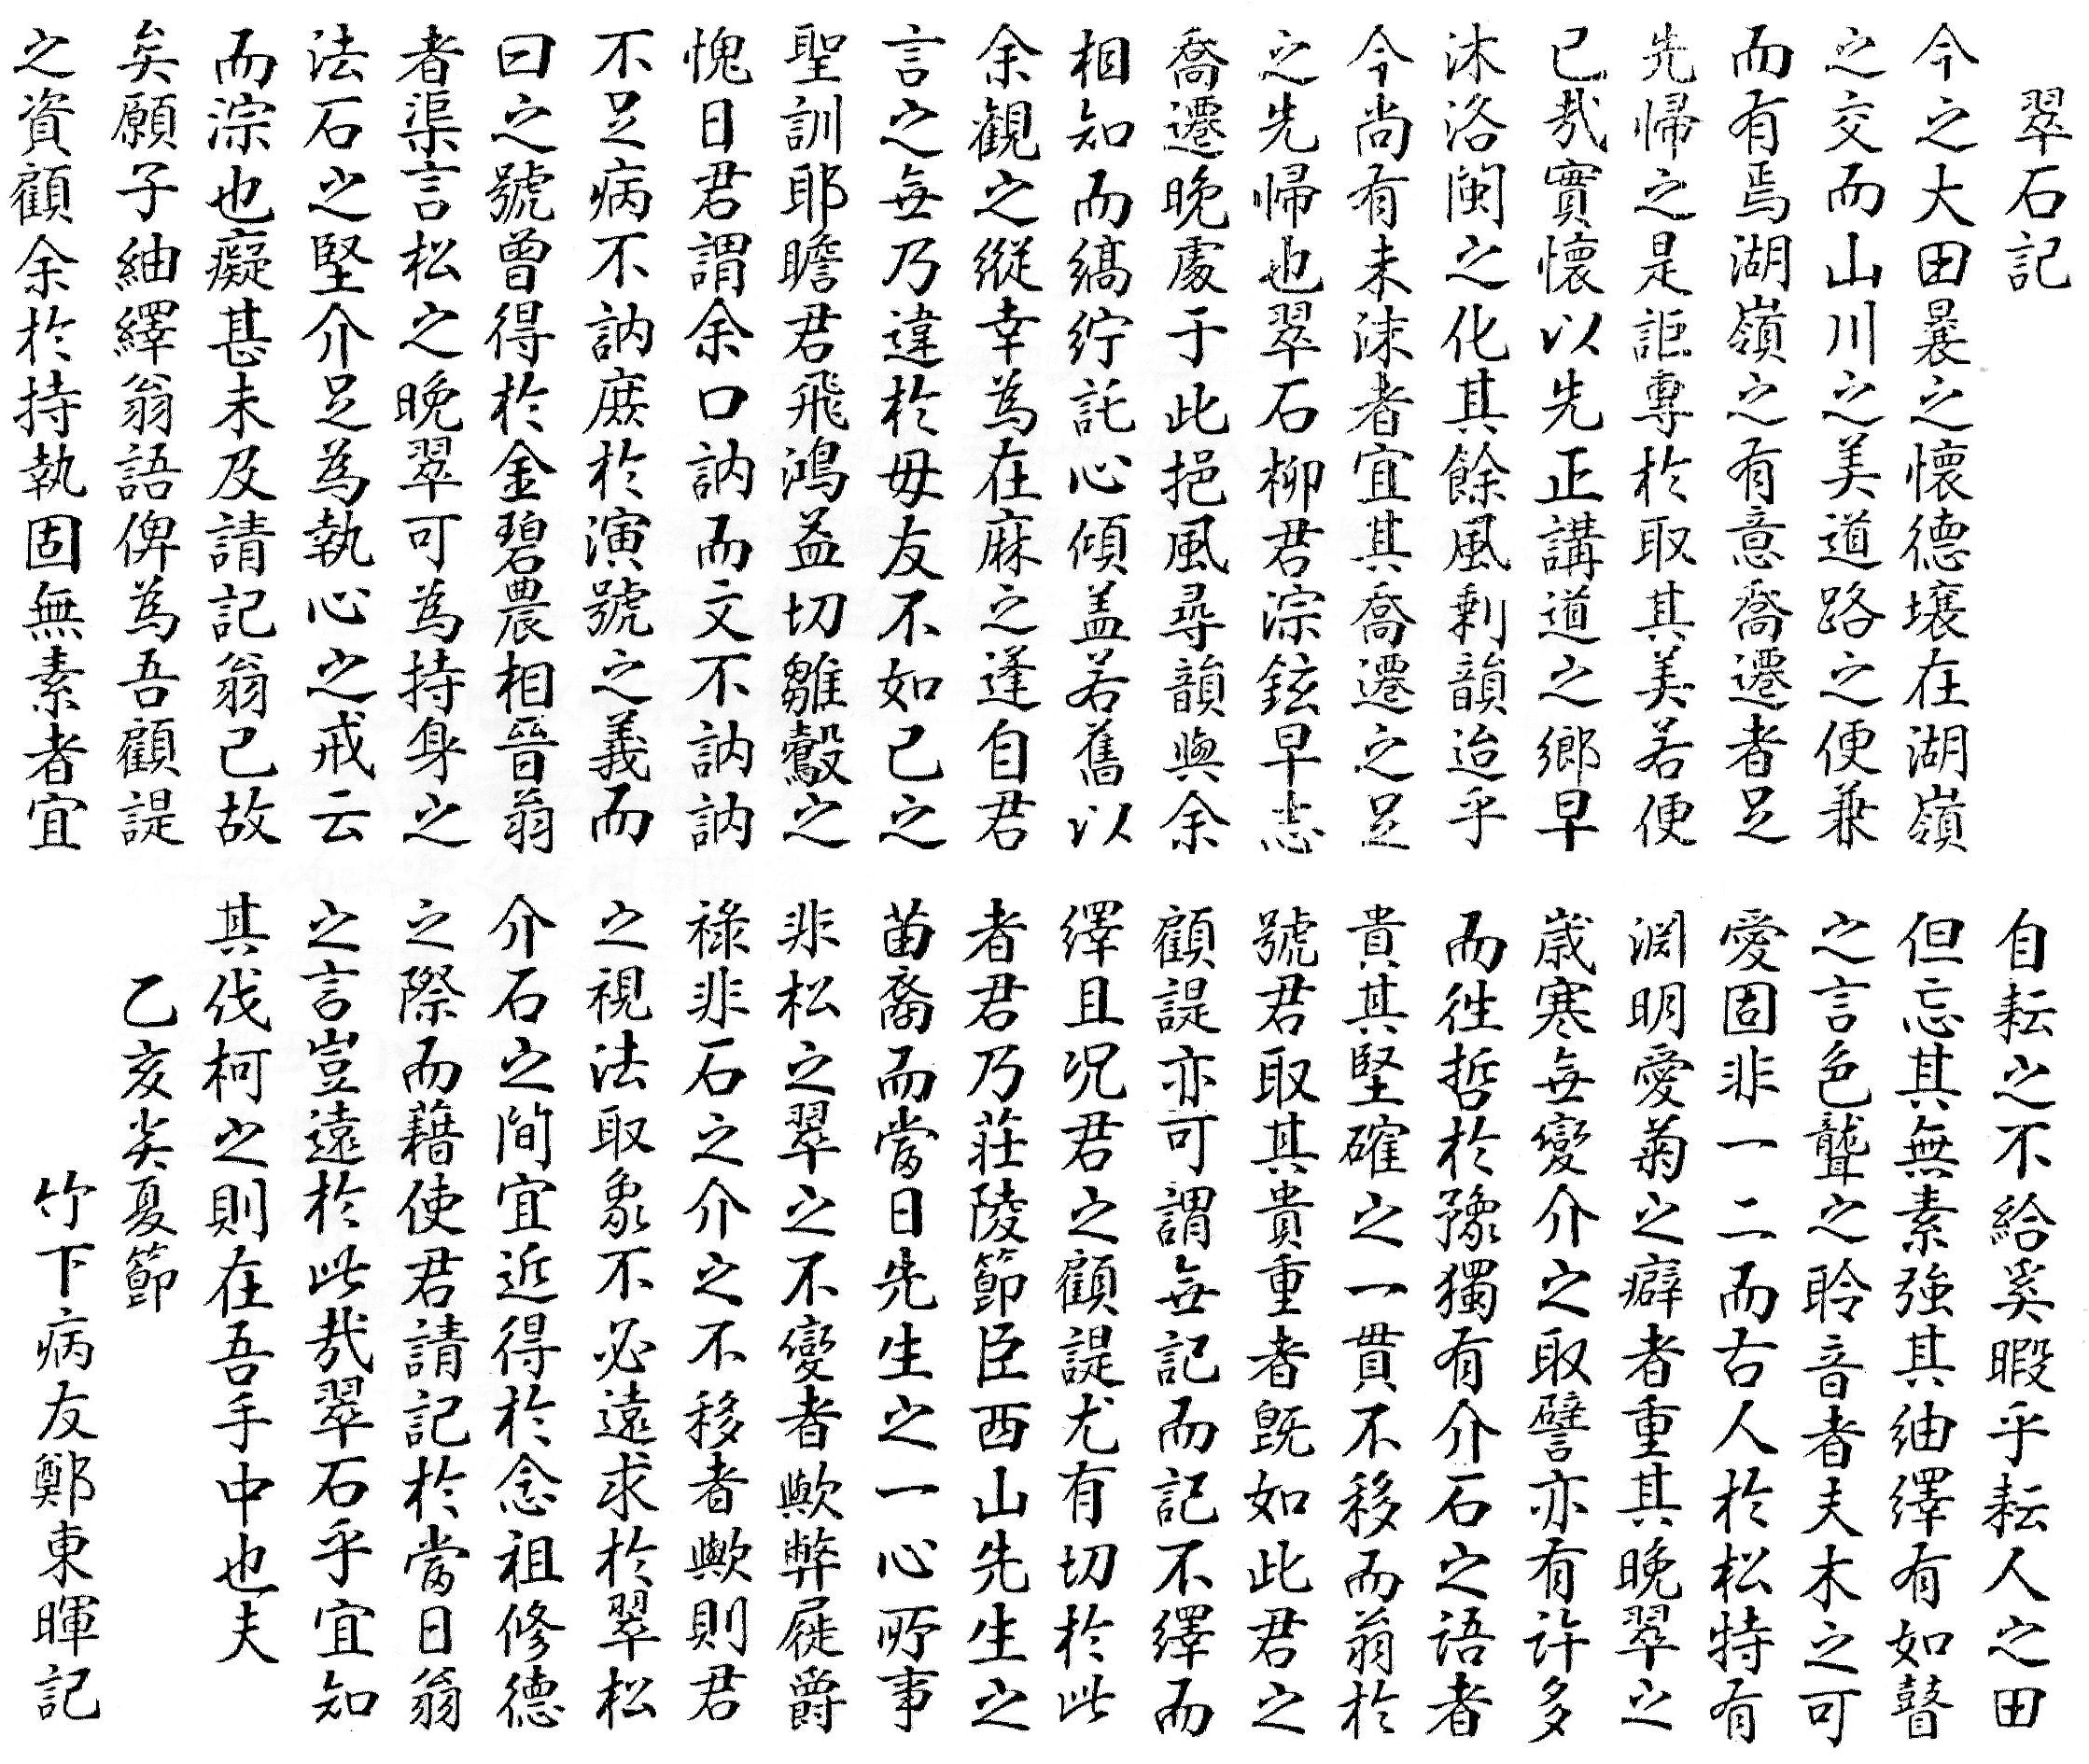 翠石記
今之大田曩之懷德壤在湖嶺
之交而山川之美道路之便兼
而有焉湖嶺之有意喬遷者足
先歸之是詎專於取其美若便
已哉實懷以先正講道之鄕早
沐洛閩之化其餘風剩韻迨乎
今尚有未沫者宜其喬遷之足
之先歸也翠石柳君淙鉉早志
喬遷晩處于此挹風尋韻與余
相知而縞紵託心傾盖若舊以
余觀之縱幸為在麻之逢自君
言之無乃違於毋友不如己之
聖訓耶瞻君飛鴻益切雛鷇之
愧日君謂余口訥而文不訥訥
不足病不訥庶於演號之義而
曰之號曾得於金碧農相晉翁
者渠言松之晩翠可為持身之
法石之堅介足為執心之戒云
而淙也癡甚未及請記翁已故
矣願子紬繹翁語俾為吾顧諟
之資顧余於持執固無素者宜
自耘之不給奚暇乎耘人之田
但忘其無素強其紬繹有如瞽
之言色聾之聆音者夫木之可
愛固非一二而古人於松特有
渊明愛菊之癖者重其晩翠之
歲寒無變介之取譬亦有许多
而徃哲於豫獨有介石之語者
貴其堅確之一貫不移而翁於
號君取其貴重者旣如此君之
顧諟亦可謂無記而記不繹而
繹且况君之顧諟尤有切於此
者君乃莊陵節臣西山先生之
苗裔而當日先生之一心所事
非松之翠之不變者歟弊屣爵
祿非石之介之不移者歟則君
之視法取象不必遠求於翠松
介石之間宜近得於念祖修德
之際而藉使君請記於當日翁
之言豈遠於此哉翠石乎宜知
其伐柯之則在吾手中也夫
乙亥夹夏節
竹下病友鄭東暉記